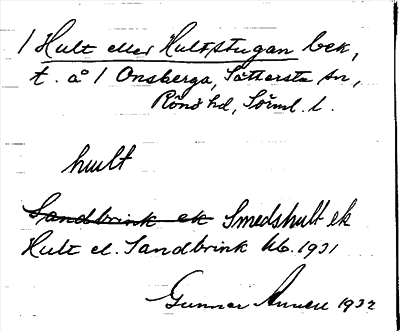 / Hult eller Hultstugan bek,
t. å / Onsberga, Sättersta sn,
Rönö hd, Sörml. l.
hult
Sandbrink ek Smedshult ek
Hult el. Sandbrink kb. 1931
Gunnar 1932